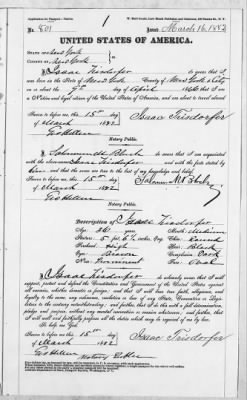 No. 801
Issued March 16, 1882
UNITED STATES OF AMERICA.
STATE OF New York
COUNTY OF New York
I, Isaac Triesdorfer do swear that I was
born in the State of New York County of New York City
on the 7th day of April 1846 that I am
a Native and loyal citizen of the United States of America, and am about to travel abroad
Sworn to before me this 15th day
of March 1882
Isaac Triesdorfer
Notary Public.
do swear that I am acquainted
with the above-named Isaac Triesdorfer and with the facts stated by
him and that the same are true to the best of my knowledge and belief.
Sworn to before me this 15th day
of March 1882
Notary Public.
Description of Isaac Triesdorfer
Age
Mouth Medium
Stature 5 feet
Chin Round
Forehead High
Hair Black
Eyes Brown
Complexion Dark
Nose Prominent
Face Oval
I, Isaac Triesdorfer do solemnly swear that I will
support, protect and defend the Constitution and Government of the United States against
all enemies, whether domestic or foreign; and that I will bear true faith, allegiance, and
loyalty to the same, any ordinance, resolution or law of any State, Convention or Legis-
lature to the contrary notwithstanding; and further, that I do this with a full determination,
pledge and purpose, without any mental reservation or evasion whatsoever; and further, that
I will well and faithfully perform all the duties which may be required of me by law.
So help me God.
Sworn to before me this 15th day
of March 1882
Isaac Triesdorfer
Notary Public